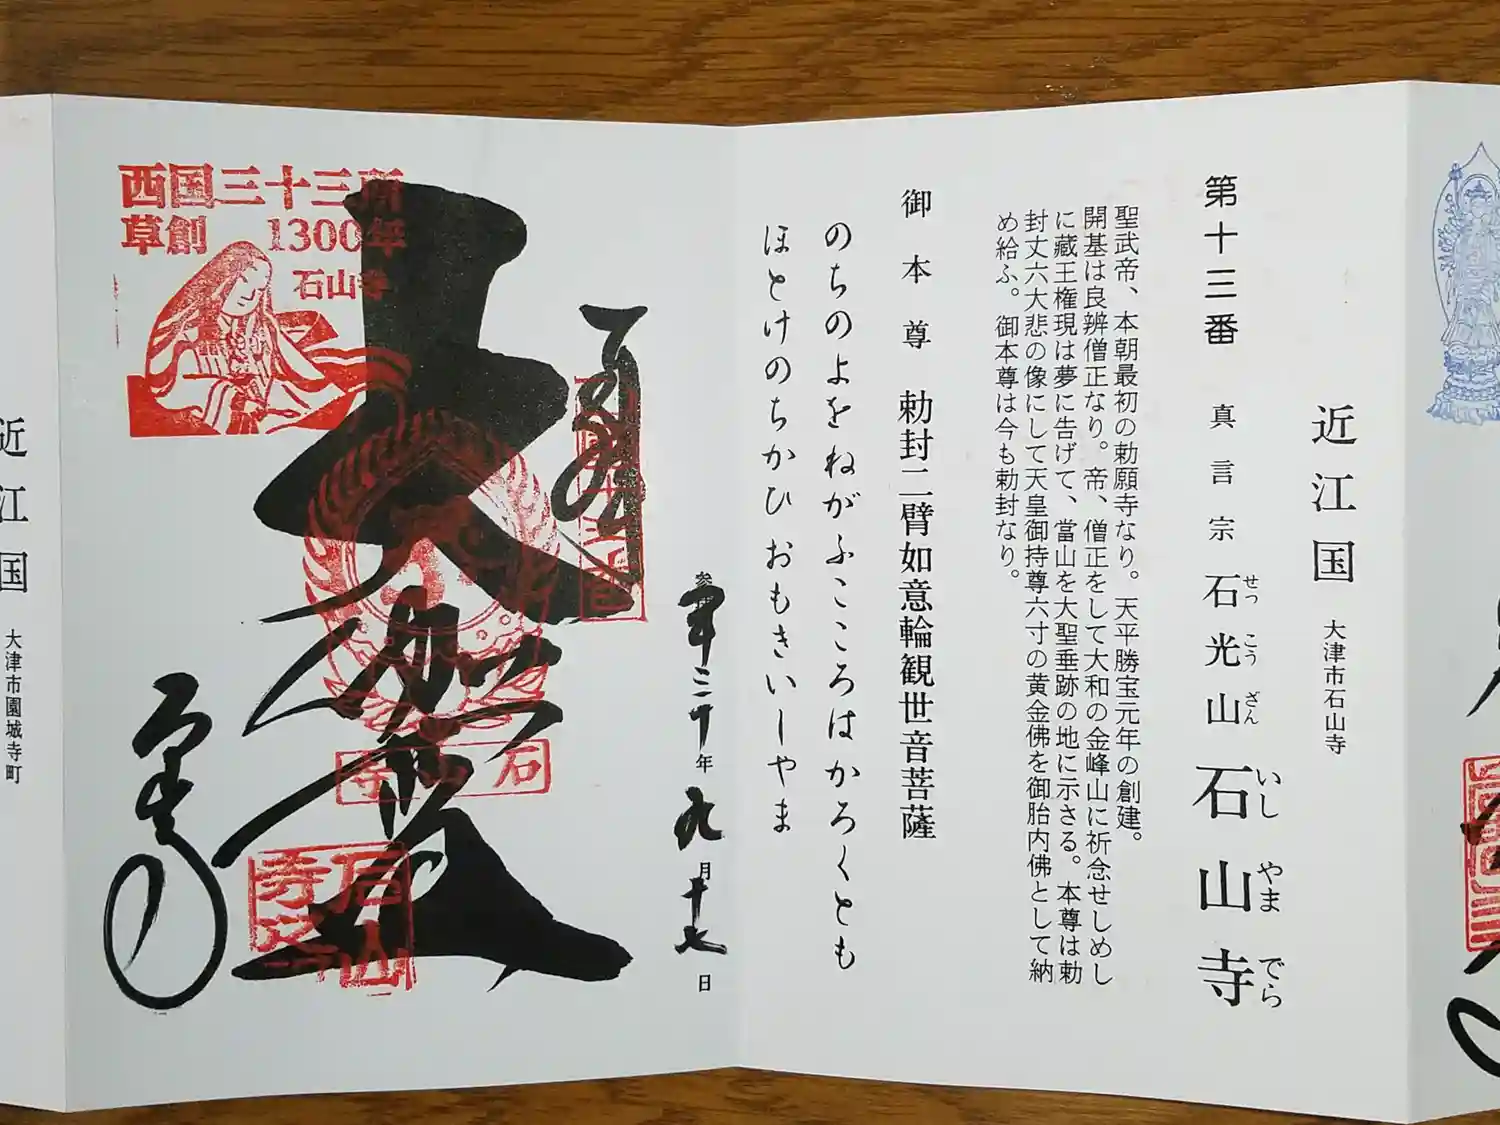 近江国 大津市石山寺
第十三番 真言宗 石光山 石山寺
せっ こう ざん いし やま でら
聖武帝、本朝最初の勅願寺なり。天平勝宝元年の創建。
開基は良辨僧正なり。帝、僧正をして大和の金峰山に祈念せしめし
に蔵王権現は夢に告げて、當山を大聖垂跡の地に示さる。本尊は勅
封丈六大悲の像にして天皇御持尊六寸の黄金佛を御胎内佛として納
め給ふ。御本尊は今も勅封なり。
御本尊 勅封二臂如意輪観世音菩薩
のちのよをねがふこころはかろくとも
ほとけのちかひおもきいしやま
年三十年九月十七日
奉拝
大伽藍
石山寺
西国三十三所
草創 1300年
石山寺
石山寺
近江国 大津市園城寺町